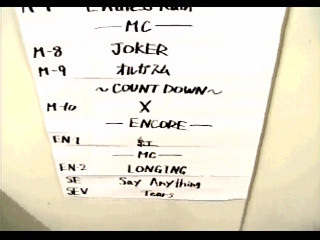 ENDLESS RAIN
—MC—
M-8 JOKER
M-9 オルガスム
〜COUNT DOWN〜
M-10 X
—ENCORE—
EN-1 紅
—MC—
EN-2 LONGING
SE Say Anything
SEV Tears